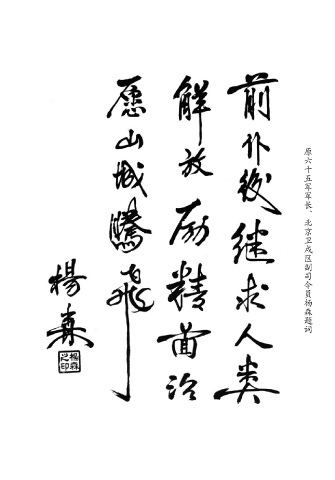 原六十五军军长、北京卫戍区副司令员杨森题词
前仆後继求人类
解放励精图治
愿山城腾飞
楊森
楊森之印